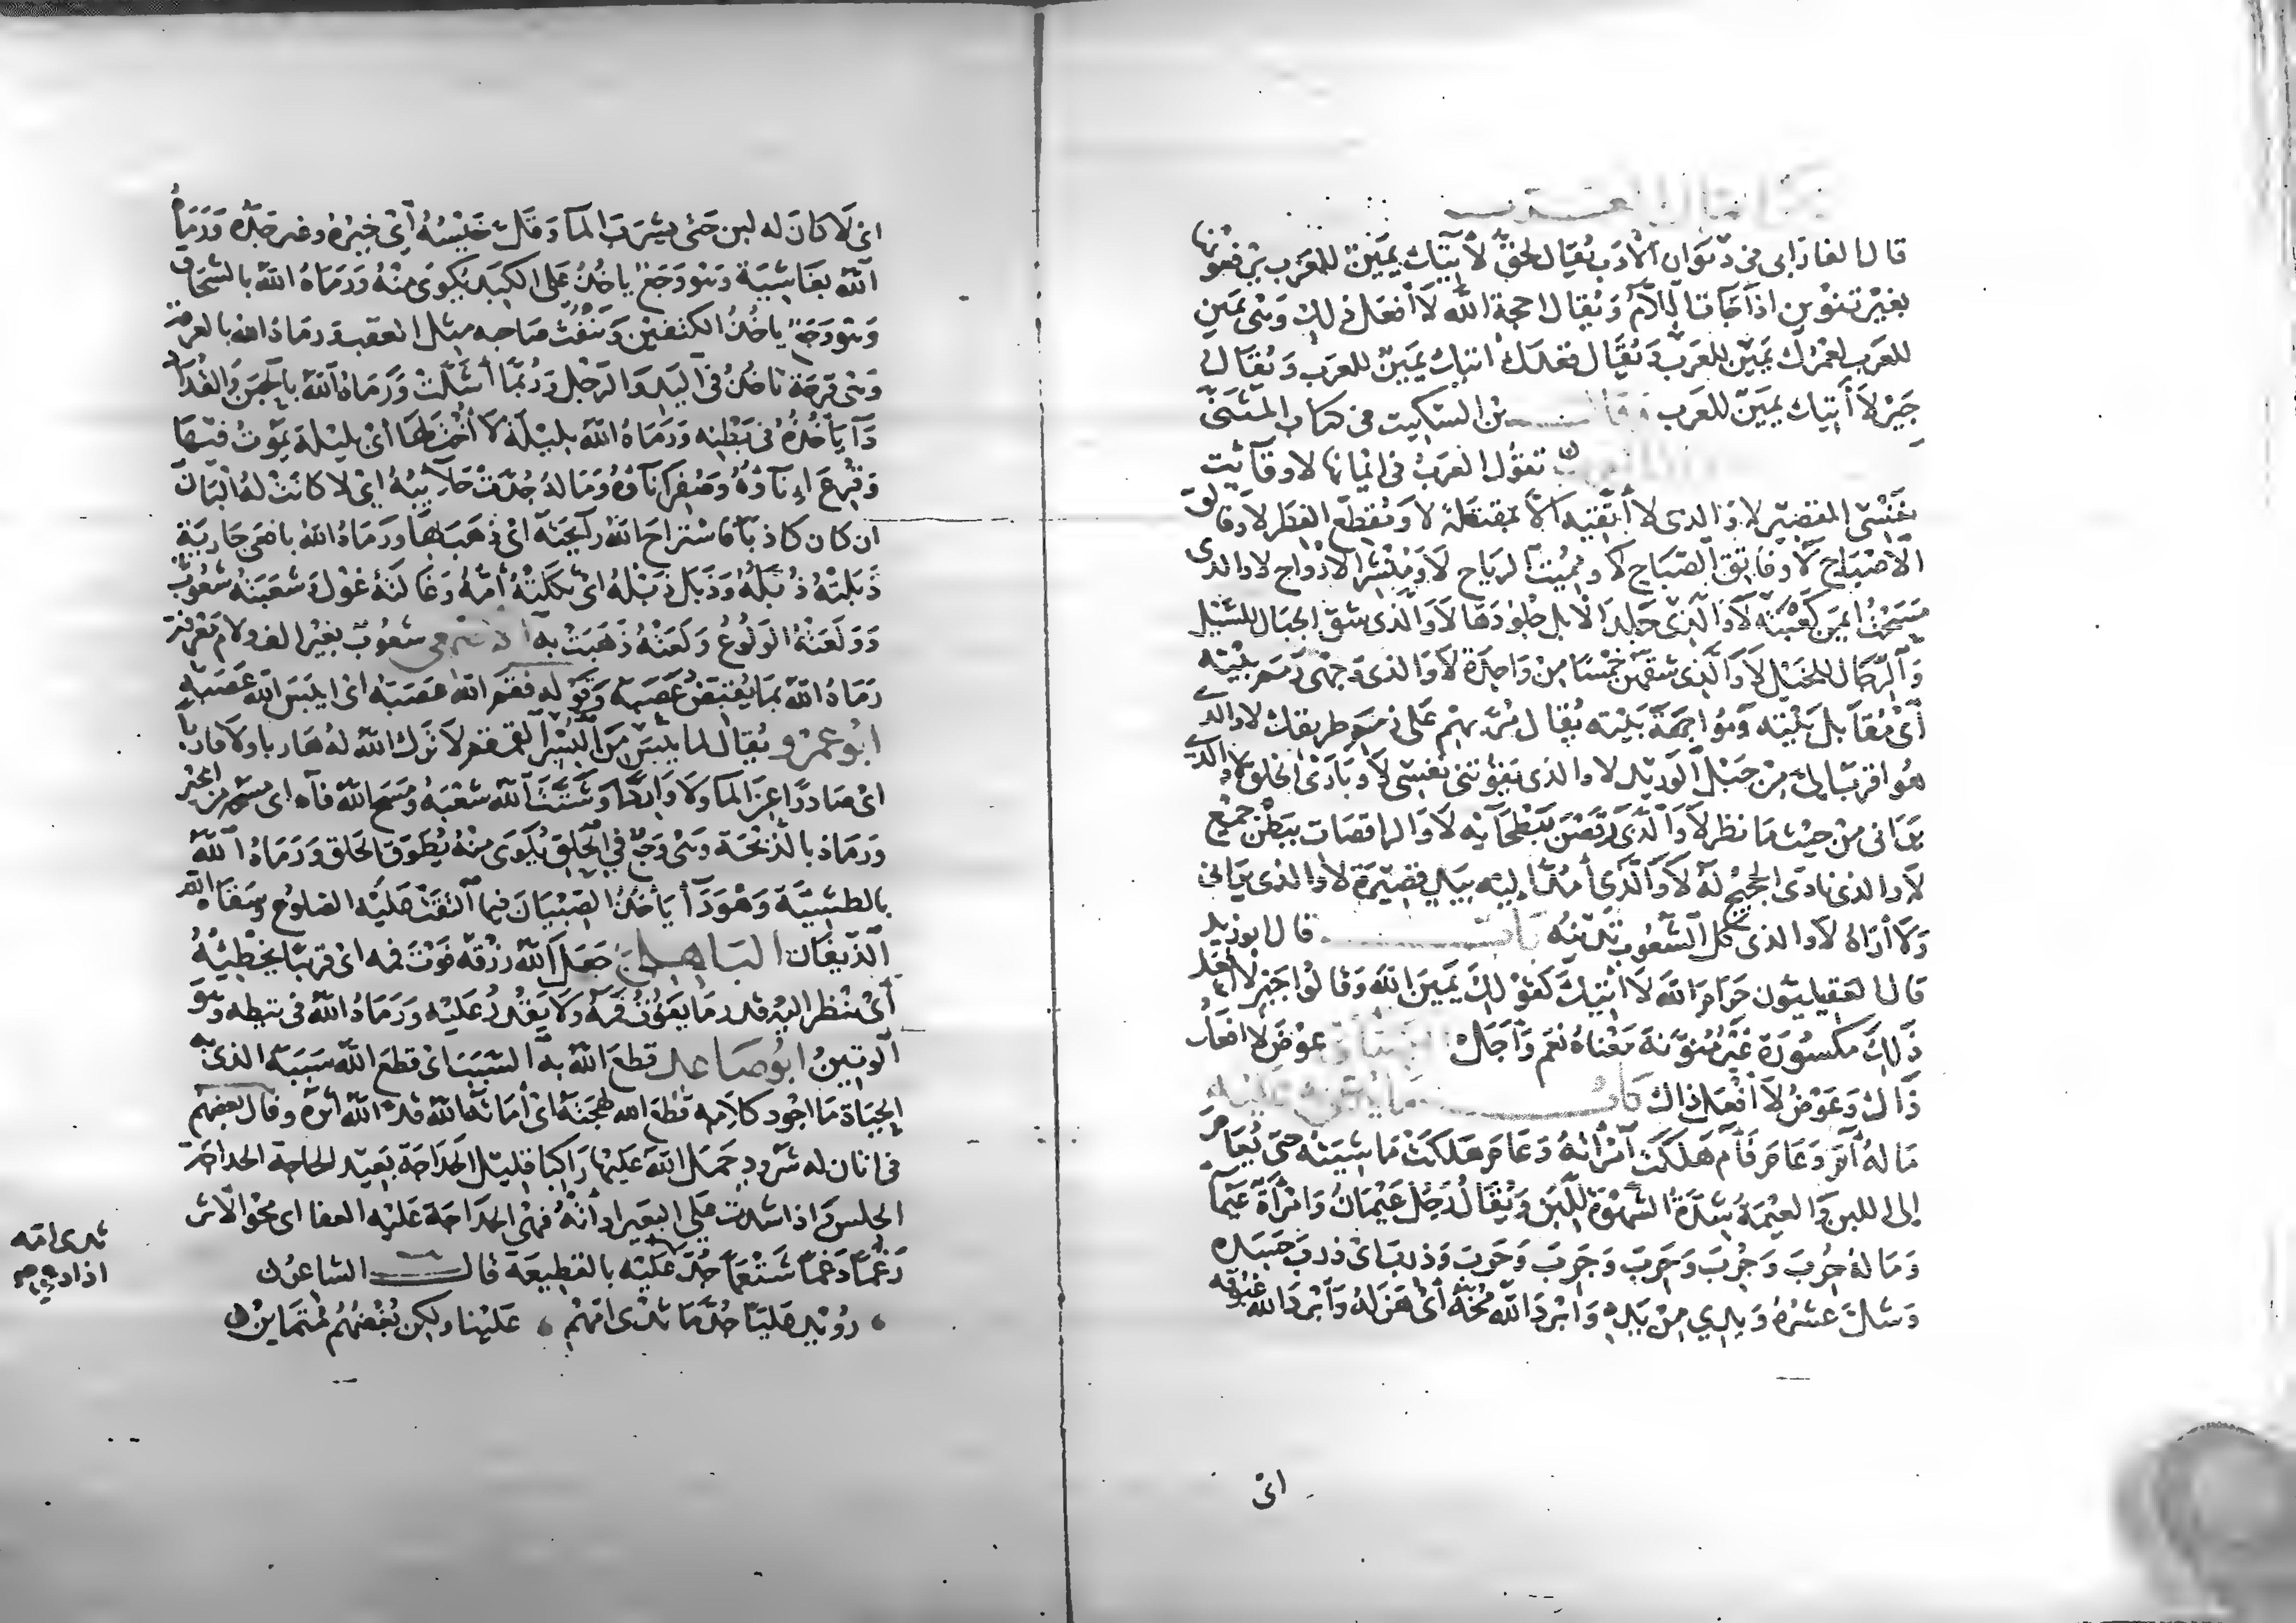 قال الفارابى فى ديوان الأدب يُقال لحقُّ لآتيك يمين للعرب يرفعونها
بغير تنوين اذا جاءت اللام ويُقال احجة الله لا أفعل ذلك وهى يمين
للعرب لعمرك يمين للعرب ويُقال قعدك آتيك يمين للعرب ويُقال
جَيْرِ لا آتيك يمين للعرب وقال بن السكيت فى كتاب المثنى
تقول العرب فى ايمانها لا وقآئت
نفسى القصير لا والذى لا أتقيه الا بمقتله لا ومُقطّع القطر لا وفالق
الاصباح لا وفاتق الصباح لا ومُهِبّ الرياح لا ومُنشِر الارواح لا والذى
مسحت ايمن كعبته لا والذى جلد الابل جلودها لا والذى شق الجبال للسيل
والرجال للخيل لا والذى شقهن خمسا من واحدة لا والذى وجهى زمم بيته
أى مُقابل بيته ومواجهة بيته يُقال مُرّ بهم على زمم طريقك لا والذى
هو اقرب الىّ من حبل الوريد لا والذى يقوتنى نفسى لا وبارئ الخلق لا والذى
يرانى من حيث ما نظر لا والذى رقصن ببطحآئه لا والراقصات ببطن جمع
لا والذى نادى الحجيج له لا والذى أمُدّ اليه بيد قصيرة لا والذى يرانى
ولا أراه لا والذى كل الشعوب تدينه قال ابو زيد
قال العقيليون حرام الله لا آتيك كقولك يمين الله وقالوا جير لا أفعل
ذلك مكسورة غير منونة معناه نعم وأجل عوض لا افعل
ذاك وعوضُ لا أفعل ذاك
ما له آم وعام فآم هلكت امرأته وعام هلكت ماشيته حتى يُعام
الى اللبن والعيمة شدّة الشهوة للبن ويُقال رجل عيمان وامرأة عيما
وما له حُرب وجُرب وحَرِب وجَرِب وذرب اى ذرب جسده
وشلّ عشره ويدي من يده وابرد الله مُخّه أى هزله وأبرد الله غبوقه
اى
اى لا كان له لبن حتى يشرب المآ وقل خيسه أى خيره وعبر جلده ورماه
الله بغاشية وهو وجع ياخذ على الكبد يكوى منه ورماه الله بالسحاف
وهو وجع ياخذ الكتفين وينفث صاحبه مثل العصب ورماه الله بالعرفة
وهى قرحة تاخذ فى اليد والرجل وربما أشلّت ورماه الله بالحبن والقداد
دآ ياخذه فى بطنه ورماه الله بليلة لا أخت لها أى بليلة يموت فيها
وقرع إنآؤه وصفر إنآؤه وما له جُدّت حلآئبه اى لا كانت له البان
ان كان كاذبا فاستراح الله رآئحته اى ذهب بها ورماه الله بافعى جارية
ذبلته ذبله وذبل ذبله اى ثكلته أمه وغالته غول وشعبته شعوب
وولعته الولوع ولعته ذهبت به شعوب بغير الف ولام معرفة
رماه الله بما يقبض عصبه وقوله قمقم الله عصبه اى ايبس الله عصبه
ابو عمرو يُقال لما يبس من البسر القمقم لا ترك الله له هاربا ولا قاربا
اى صادرا عن المآ ولا واردا وشتت الله شعبه ومسح الله فآه اى مسحه من الخير
ورماه بالذبحة وهى وجع فى الحلق يُكوى منه يُطوق الحلق ورماه الله
بالطسئة وهو دآ يأخذ الصبيان فيما التقت عليه الضلوع وسقاه الله
الذيفان الباهلى جعل الله رزقه فوت فمه اى قريبا يخطئه
أى ينظر اليه قدر ما يفوت فمه ولا يقدر عليه ورماه الله فى نيطه وهو
الوتين ابو صاعد قطع الله به السبب اى قطع الله سببه الذى به
الحياة ما اجود كلامه قطع الله لهجته اى أماته الله قدّ الله أثره وقال بعضهم
فى اتان له شرود حمل الله عليها راكبا قليل الحداجة بعيد الحاجة الحداجة
الحلس اذا شدت على البعير أداته فهى الحداجة عليه العفا اى محو الاثر
رغما دغما شنغما جُدّ عليه بالقطيعة قال الشاعر
رويد عليا جُدّ ما ثدى امهم علينا ولكن بُغضهم متماين
ثدى امه